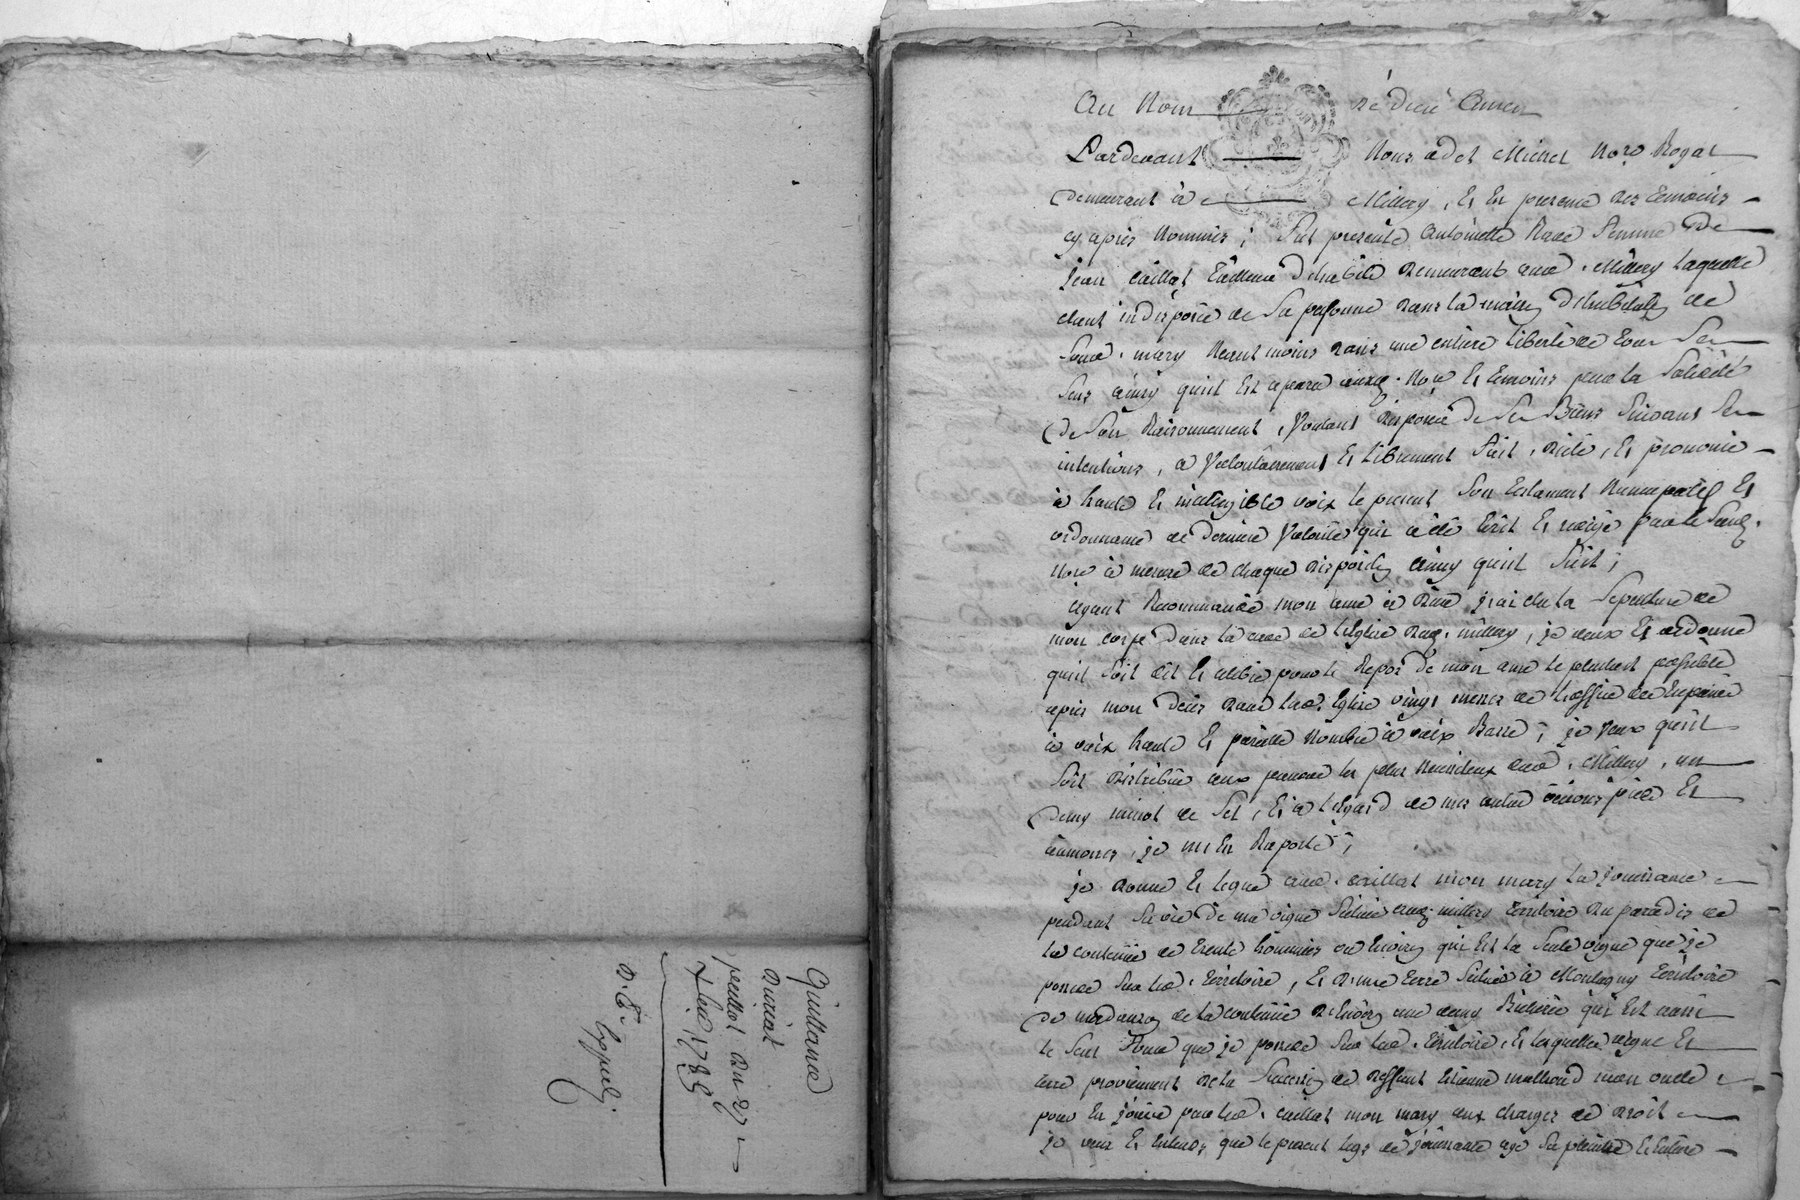 Quittance
Duriat
paillot du 27
fév. 1785
D. E.
Expedy.
Au Nom de dieu Amen
Pardevant Nous Michel No.re Royal
demeurant à Millery, Et En presence des temoins
cy après Nommés ; fut presente Antoinette Femme de
jean caillot tailleur d'habits demeurant aud. Millery laquelle
étant indisposée de Sa personne dans la maison d'habitation de
Sond. mary Neant moins dans une entiere liberté de tous Ses
Sens ainsy qu'il Est aparu auxd. No.re Et temoins par la Solidité
de Son Raisonnement, Voulant disposer de Ses Biens Suivant Ses
intentions, a Volontairement Et librement fait, dicté, Et prononcé
à haute Et intelligible voix le present Son testament Nuncupatif Et
ordonnance de derniere Volonté qui a été Ecrit Et redigé par led.
No.re à mesure de chaque disposition ainsy qu'il Suit ;
ayant Recommandé mon ame à Dieu j'ai élu la Sepulture de
mon corps dans la de L'Eglise dud. millery, je veux Et ordonne
qu'il Soit dit Et celebré pour le Repos de mon ame le plutost possible
après mon déces dans lad. Eglise vingt messes de L'office des
à voix haute Et pareille Nombre à voix Basse ; je Veux qu'il
Soit distribué aux pauvres les plus Necessiteux dud. Millery, un
demy minot de Sel, Et à L'Egard de mes autres oeuvres pies Et
aumones, je m'en Raporte ;
je donne Et legue aud. caillot mon mary la jouissance
pendant Sa vie de ma vigne Scituée aud. millery territoire du paradis de
la contenüe de trente hommées ou Environ qui Est la Seule vigne que je
possede Sur led. territoire, Et d'une terre Scituée à Montagny territoire
de de la contenüe d'Environ une demy Bicherée qui Est aussi
le Seul fond que je possede Sur led. territoire, Et lesquelles vigne Et
terre proviennent de la Succession de deffunt Etienne mathoud mon oncle
pour En jouire par led. caillot mon mary aux charges de droit
je veux Et Entends que le present legs de jouissance aye Sa pleine Et Entiere